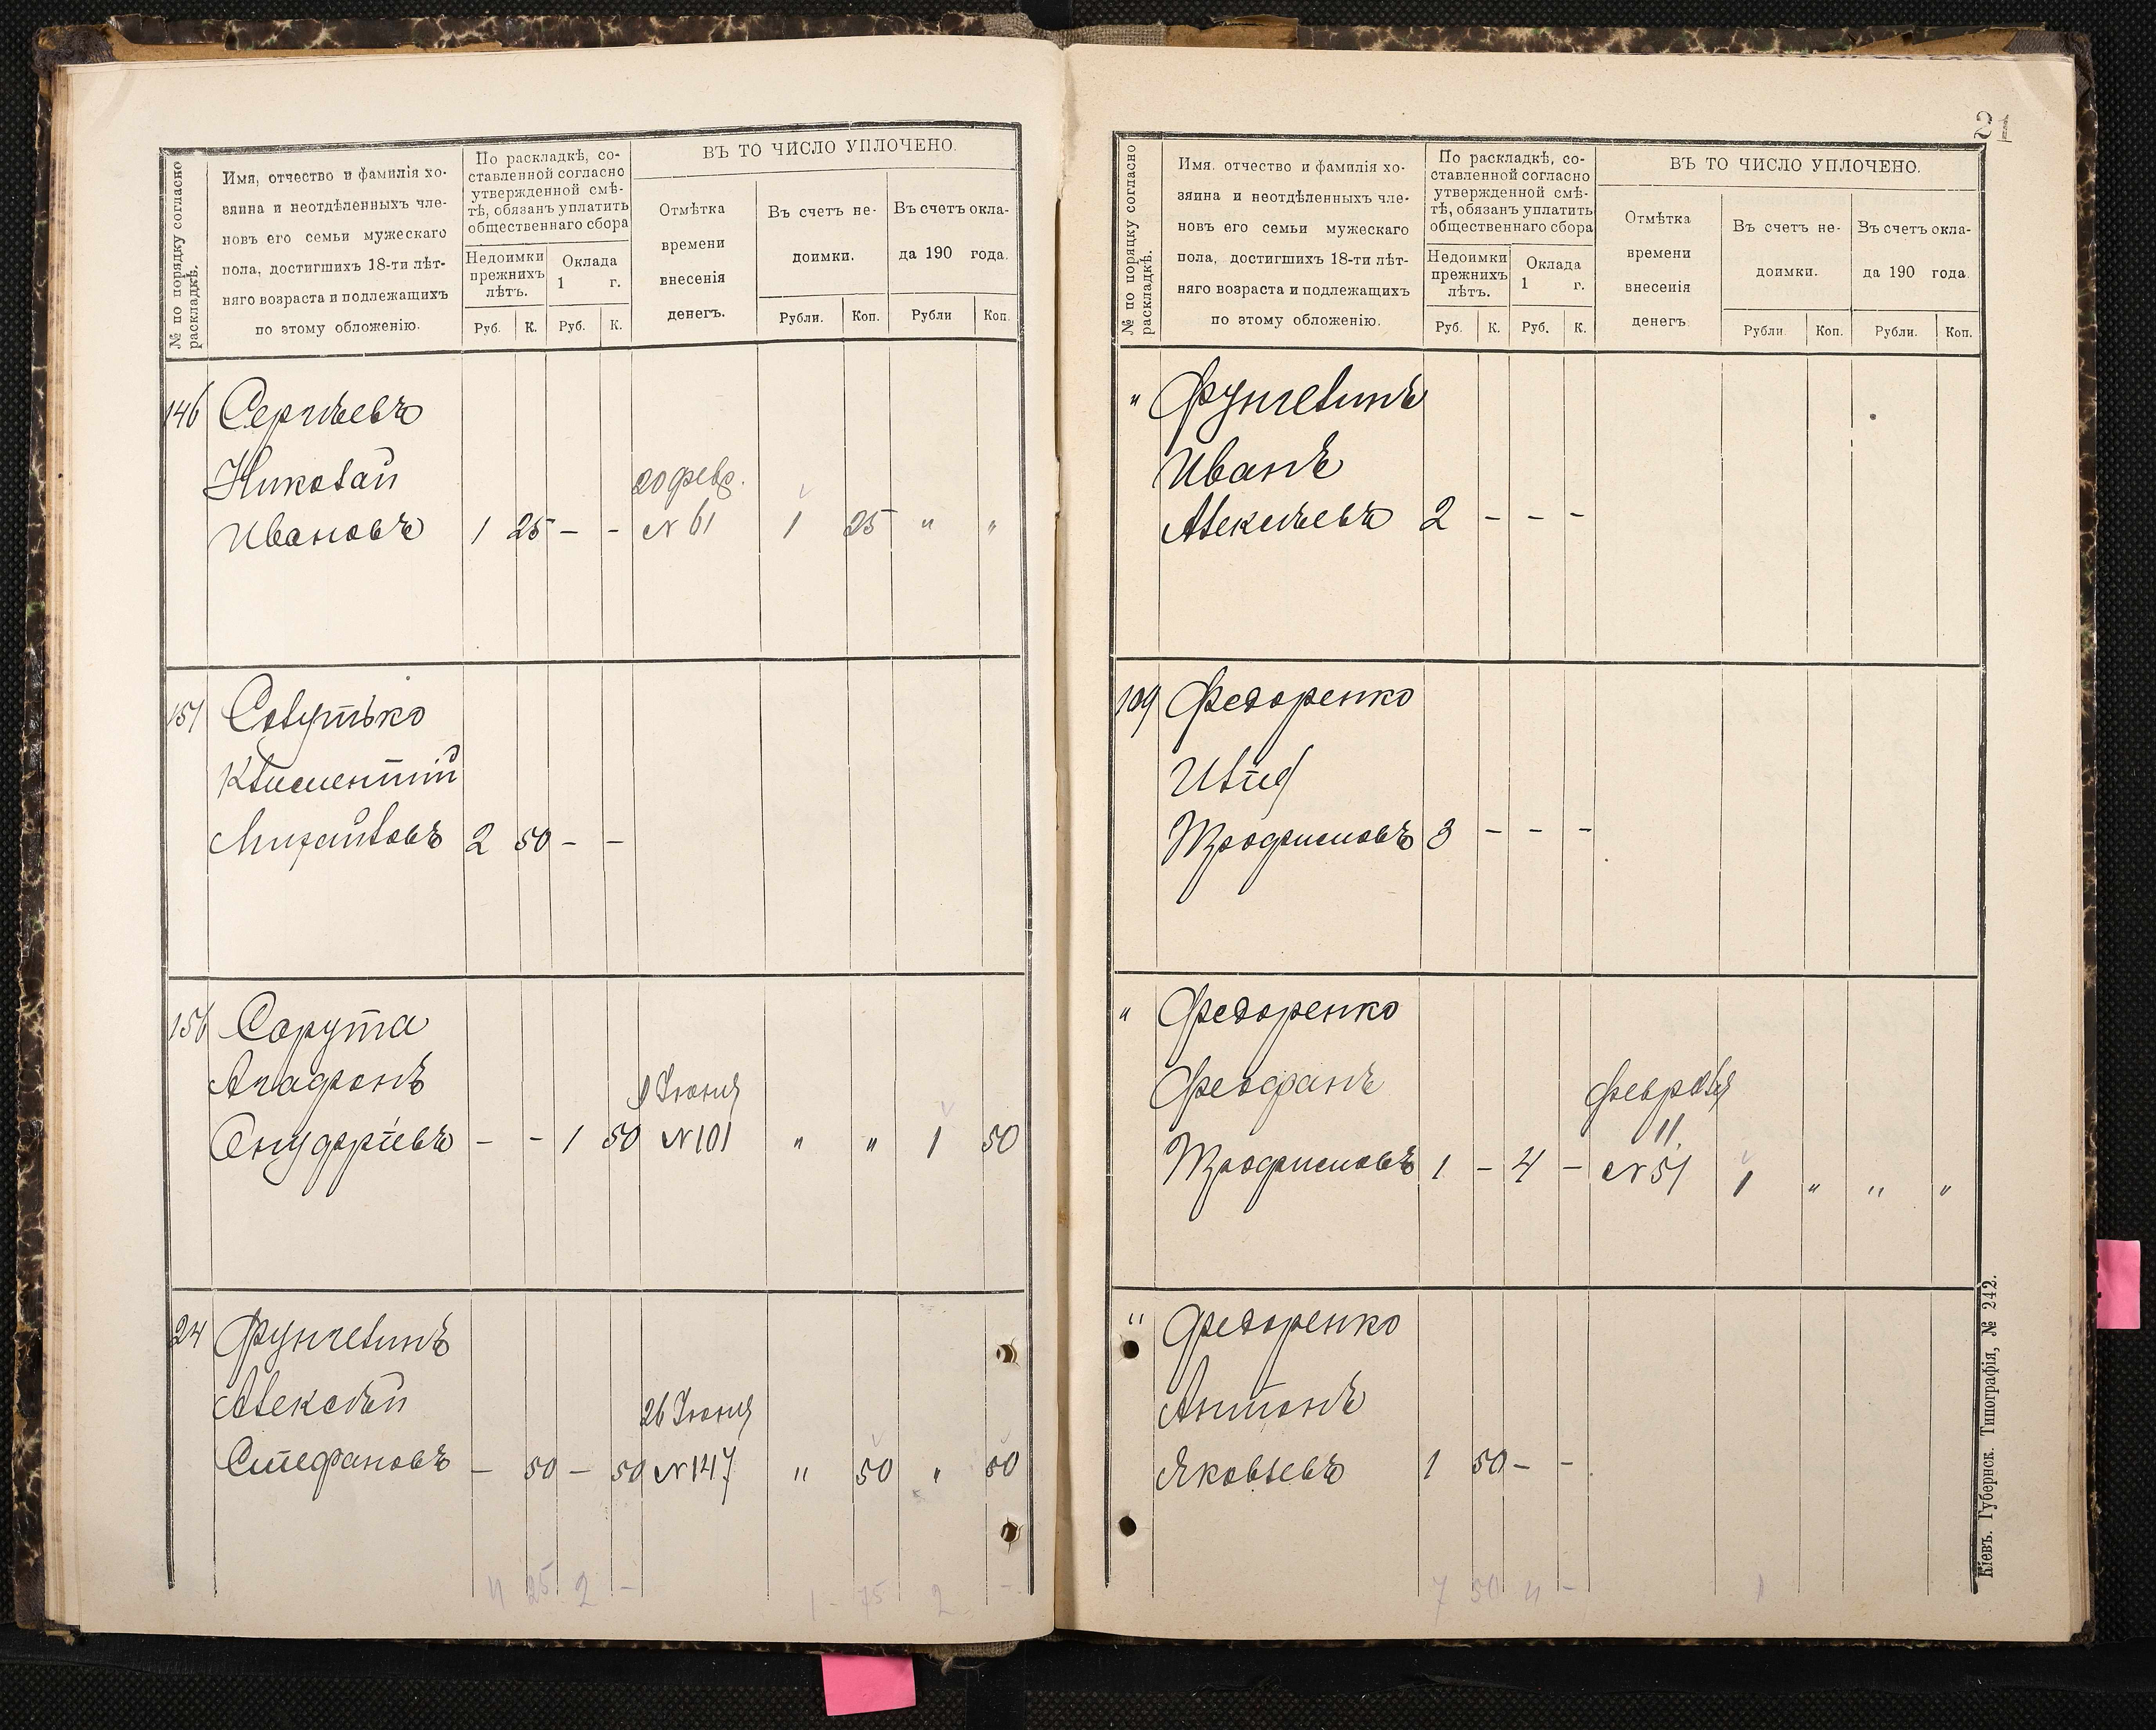 № по порядку согласно раскладкѣ.
Имя, отчество и фамилія хо-
зяина и неотдѣленныхъ чле-
новъ его семьи мужескаго
пола, достигшихъ 18-ти лѣт-
няго возраста и подлежащихъ
по этому обложенію.
По раскладкѣ, со-
ставленной согласно
утвержденной смѣ-
тѣ, обязанъ уплатить
общественнаго сбора
Недоимки
прежнихъ
лѣтъ.
Оклада
1 г.
Руб. К. Руб. К.
ВЪ ТО ЧИСЛО УПЛОЧЕНО.
Отмѣтка
времени
внесенія
денегъ.
Въ счетъ не-
доимки.
Въ счетъ окла-
да 190 года.
Рубли. Коп. Рубли Коп.
146 Сергѣевъ
Николай 20 февр.
Ивановъ 1 25 – – № 61 1 25 " "
151 Солутько
Климентій
Михайловъ 2 50 – –
156 Сорута
Агафонъ Іюня
Онуфріевъ – – 1 50 № 101 " " 1 50
24 Фунгелинъ
Алексѣй 26 Іюня
Стефановъ – 50 – 50 № 147 " 50 " 50
4 25 2 – 1 – 75 2 –
21
№ по порядку согласно раскладкѣ.
Имя. отчество и фамилія хо-
зяина и неотдѣленныхъ чле-
новъ его семьи мужескаго
пола, достигшихъ 18-ти лѣт-
няго возраста и подлежащихъ
по этому обложенію.
По раскладкѣ, со-
ставленной согласно
утвержденной смѣ-
тѣ, обязанъ уплатить
общественнаго сбора
Недоимки
прежнихъ
лѣтъ.
Оклада
1 г.
Руб. К. Руб. К.
ВЪ ТО ЧИСЛО УПЛОЧЕНО.
Отмѣтка
времени
внесенія
денегъ
Въ счетъ не-
доимки.
Въ счетъ окла-
да 190 года.
Рубли. Коп. Рубли. Коп.
" Фунгелинъ
Иванъ
Алексѣевъ 2 – – –
109 Федоренко
Илія
Трофимовъ 3 – – –
" Федоренко
Феофанъ Февраля
11.
Трофимовъ 1 – 4 – № 51 1 " " "
" Федоренко
Антонъ
Яковлевъ 1 50 – –
7 50 4 – 1
Кіевъ. Губернск. Типографія, № 242.